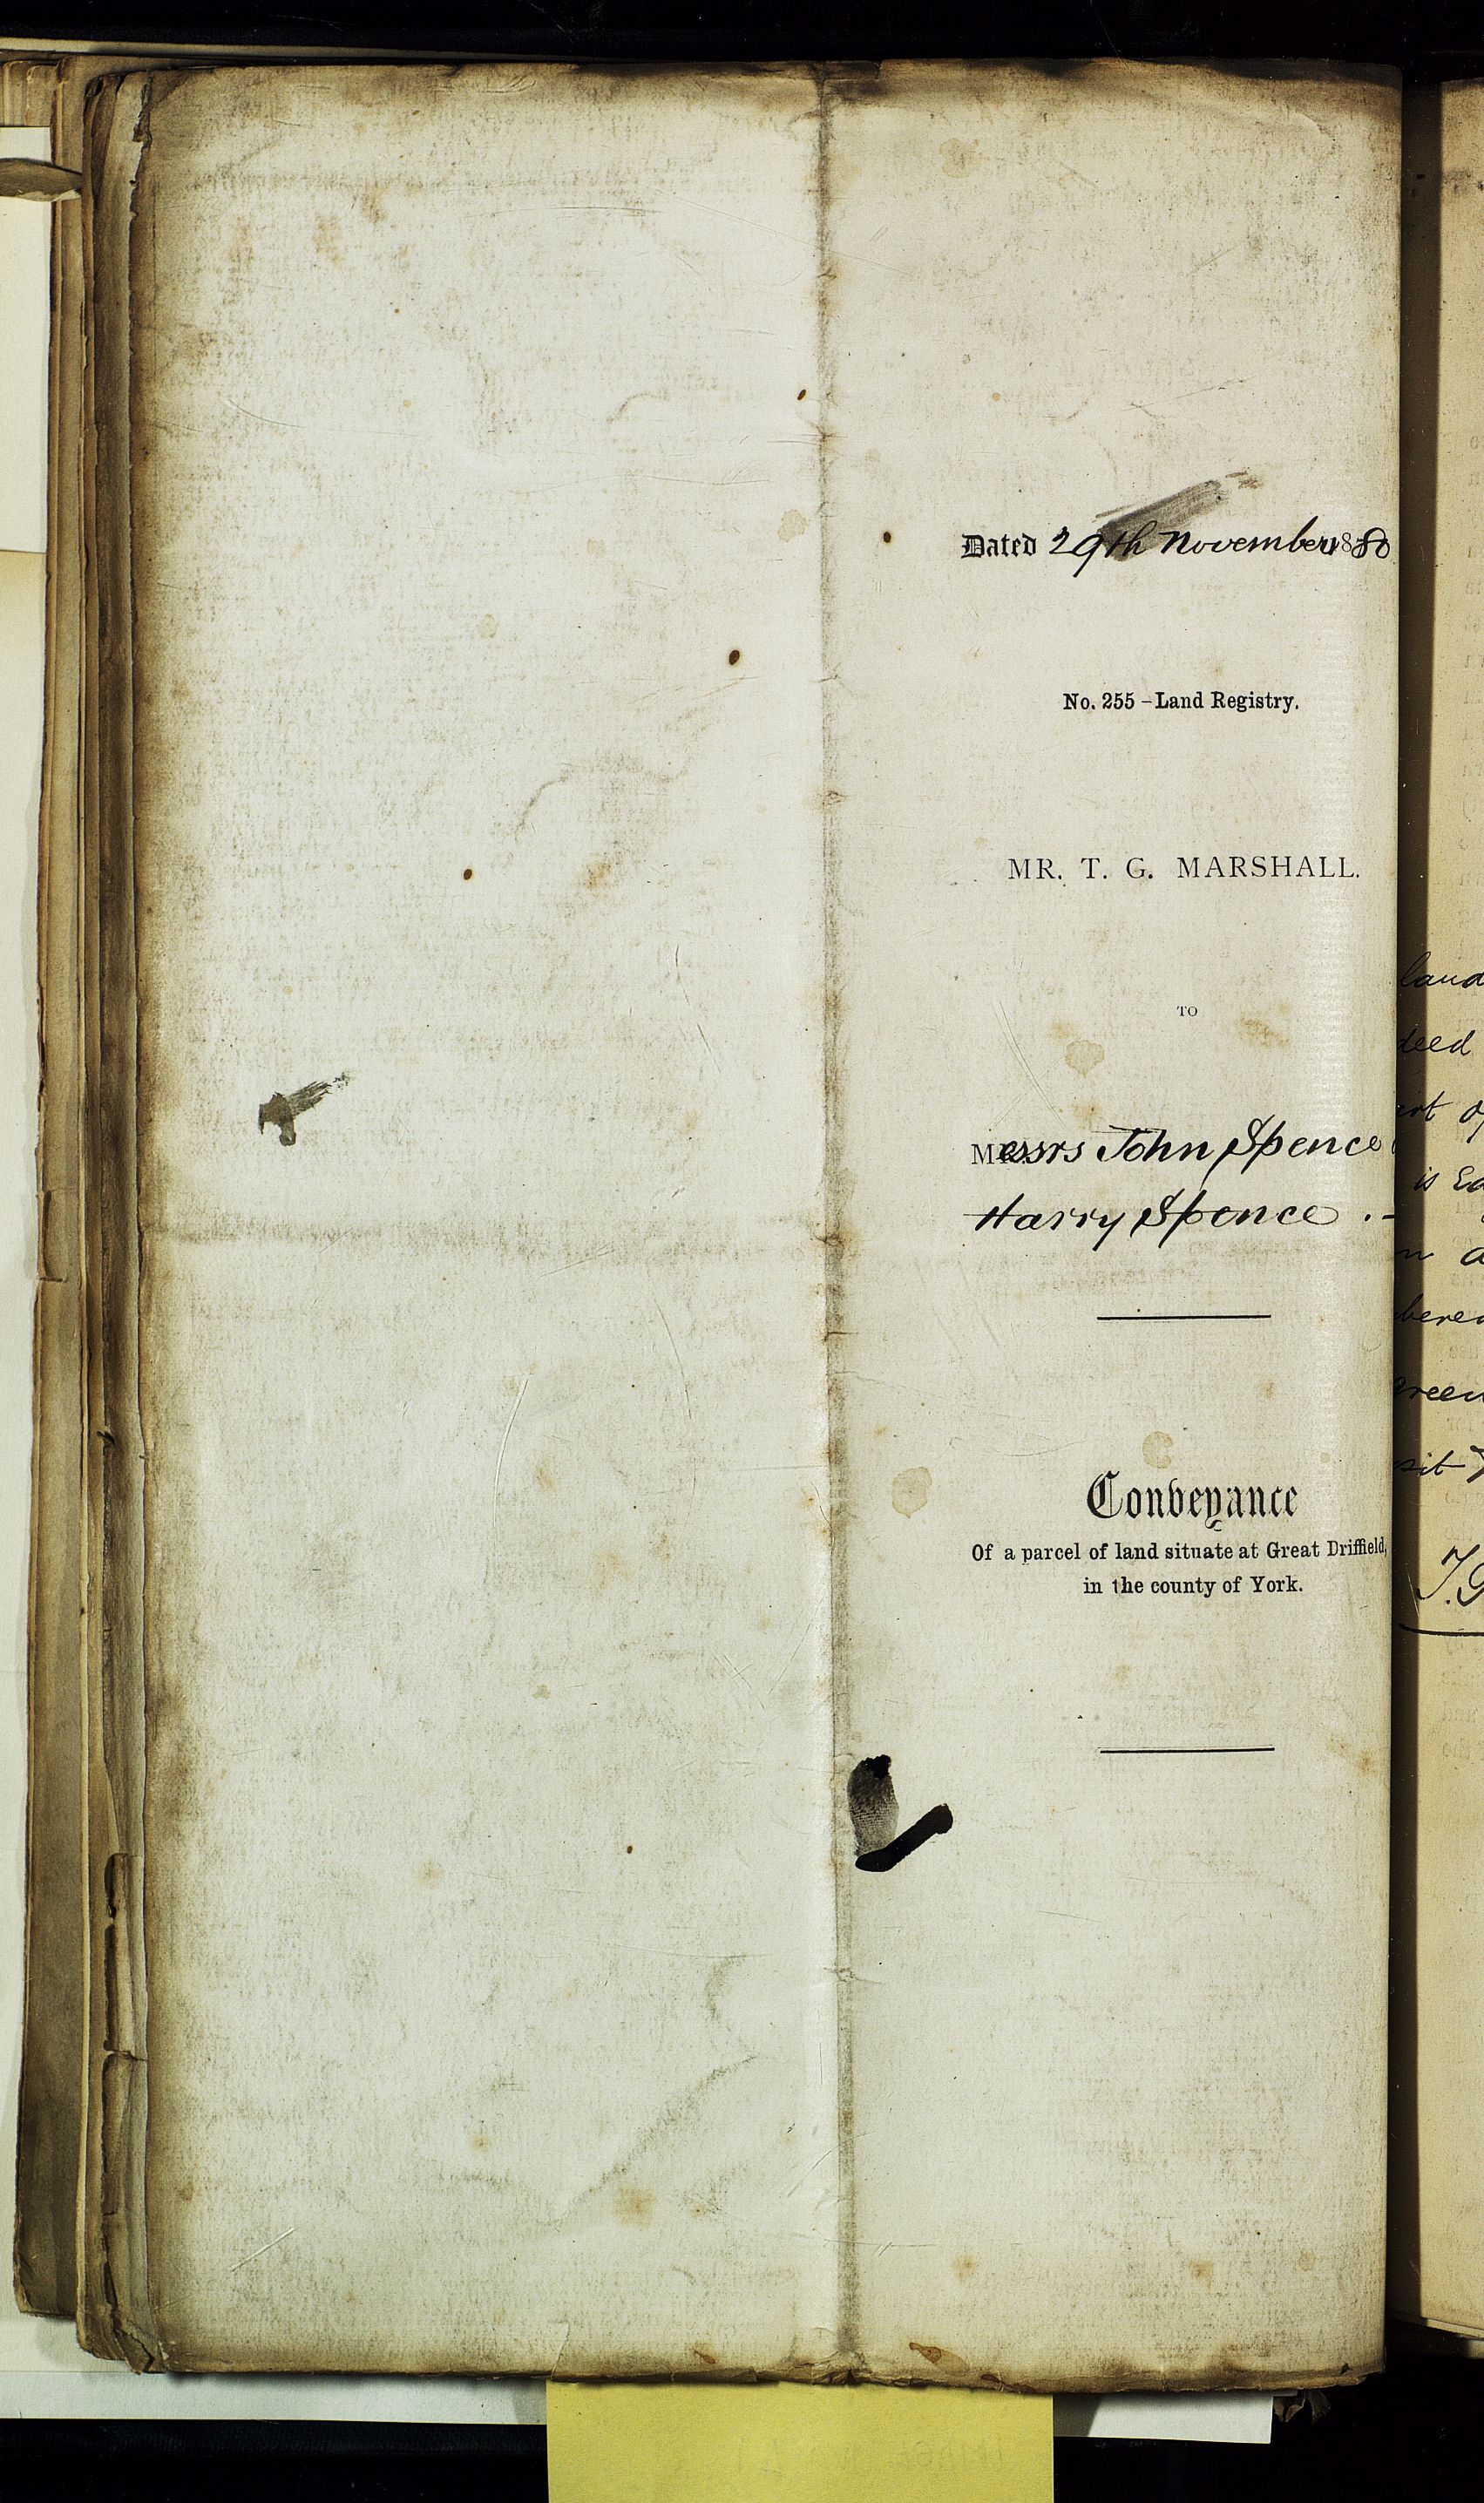 Dated 29th November 1880
No. 255 – Land Registry.
MR. T. G. MARSHALL.
TO
Messrs John Spence
Harry Spence . –
Conveyance
Of a parcel of land situate at Great Driffield,
in the county of York.
land
deed
is
T. G